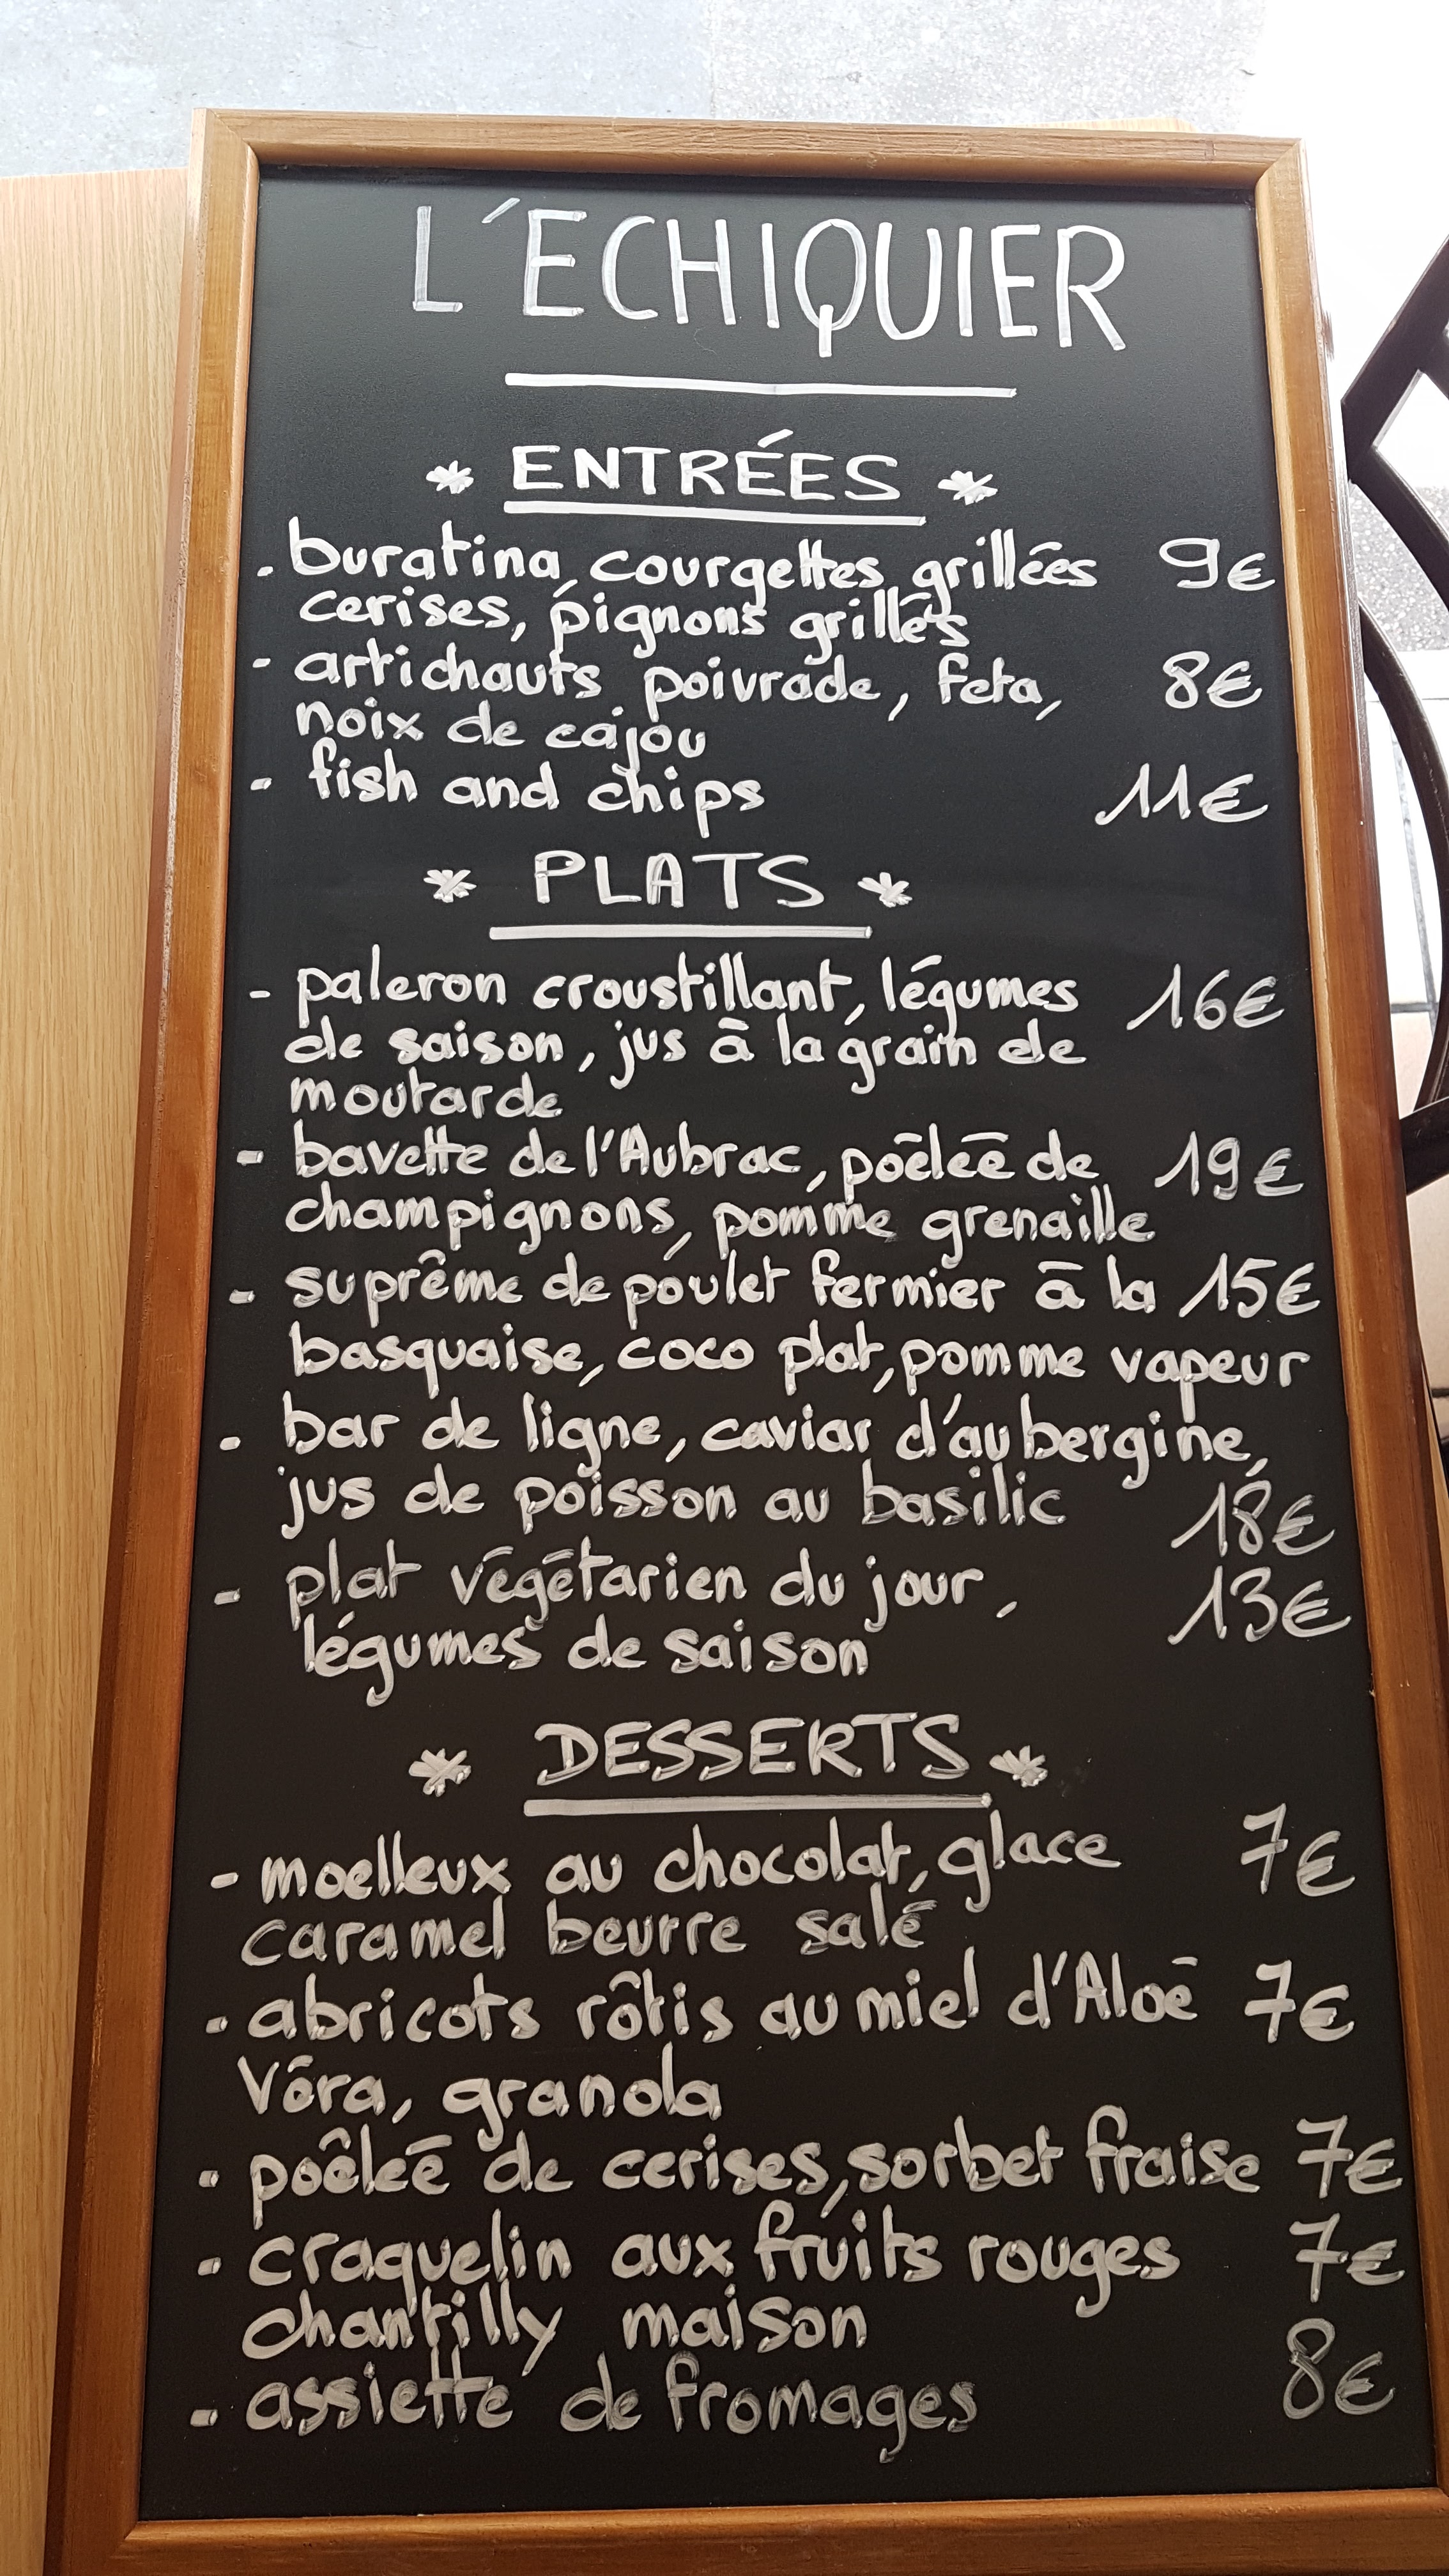 L'ECHIQUIER
* ENTRÉES *
- buratina, courgettes grillées 9€
cerises, pignons grillés
- artichauts poivrade, feta, 8€
noix de cajou
- fish and chips 11€
* PLATS *
- paleron croustillant, légumes 16€
de saison, jus à la grain de
moutarde
- bavette de l'Aubrac, poêleé de 19€
champignons, pomme grenaille
- suprême de poulet fermier à la 15€
basquaise, coco plat, pomme vapeur
- bar de ligne, caviar d'aubergine,
jus de poisson au basilic 18€
- plat végétarien du jour, 13€
légumes de saison
* DESSERTS *
- moelleux au chocolat, glace 7€
caramel beurre salé
- abricots rôtis au miel d'Aloé 7€
Véra, granola
- poêleé de cerises, sorbet fraise 7€
- craquelin aux fruits rouges 7€
chantilly maison
- assiette de fromages 8€